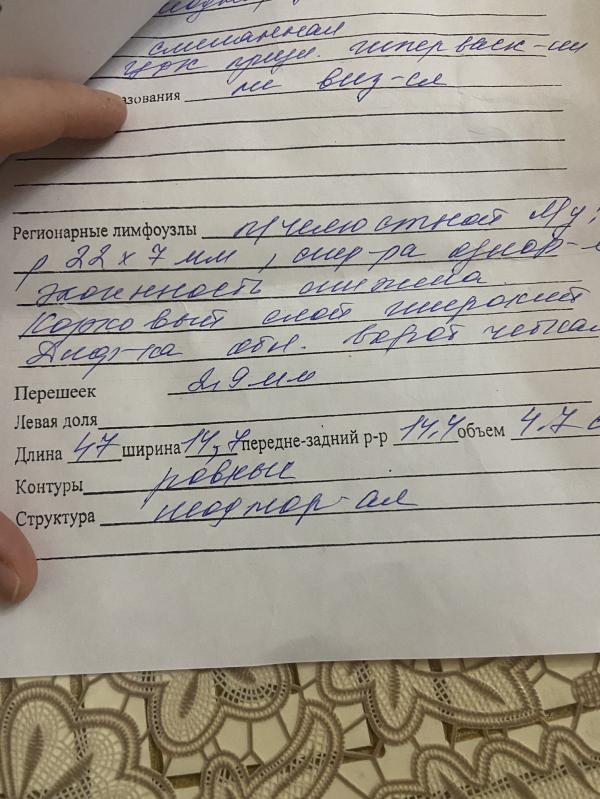 смешанная
ЦДК гипер васк-ии
азования не виз-ся
Регионарные лимфоузлы п/челюстной
р 22 х 7 мм, однор-
эхогенность снижена.
Корковый слой широкий
Диф-ка ворот четкая
Перешеек 2,9 мм
Левая доля
Длина 47 ширина 14,7 передне-задний р-р 14,4 объем 4.7 с
Контуры ровные
Структура неоднор-ая